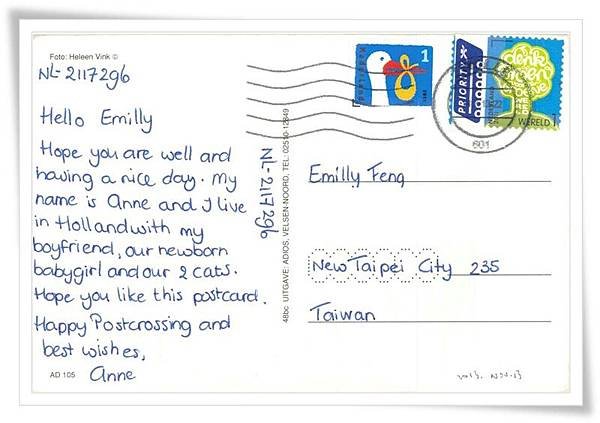 Foto: Heleen Vink ©
NL-2117296
Hello Emilly
Hope you are well and
having a nice day. My
name is Anne and I live
in Holland with my
boyfriend, our newborn
babygirl and our 2 cats.
Hope you like this postcard.
Happy Postcrossing and
best wishes,
Anne
AD 105
48bc UITGAVE: ADIOS, VELSEN-NOORD, TEL: 02510-12849
NL-2117296
1
PRIORITY
denk
groen
WERELD 1
Emilly Feng
New Taipei City 235
Taiwan